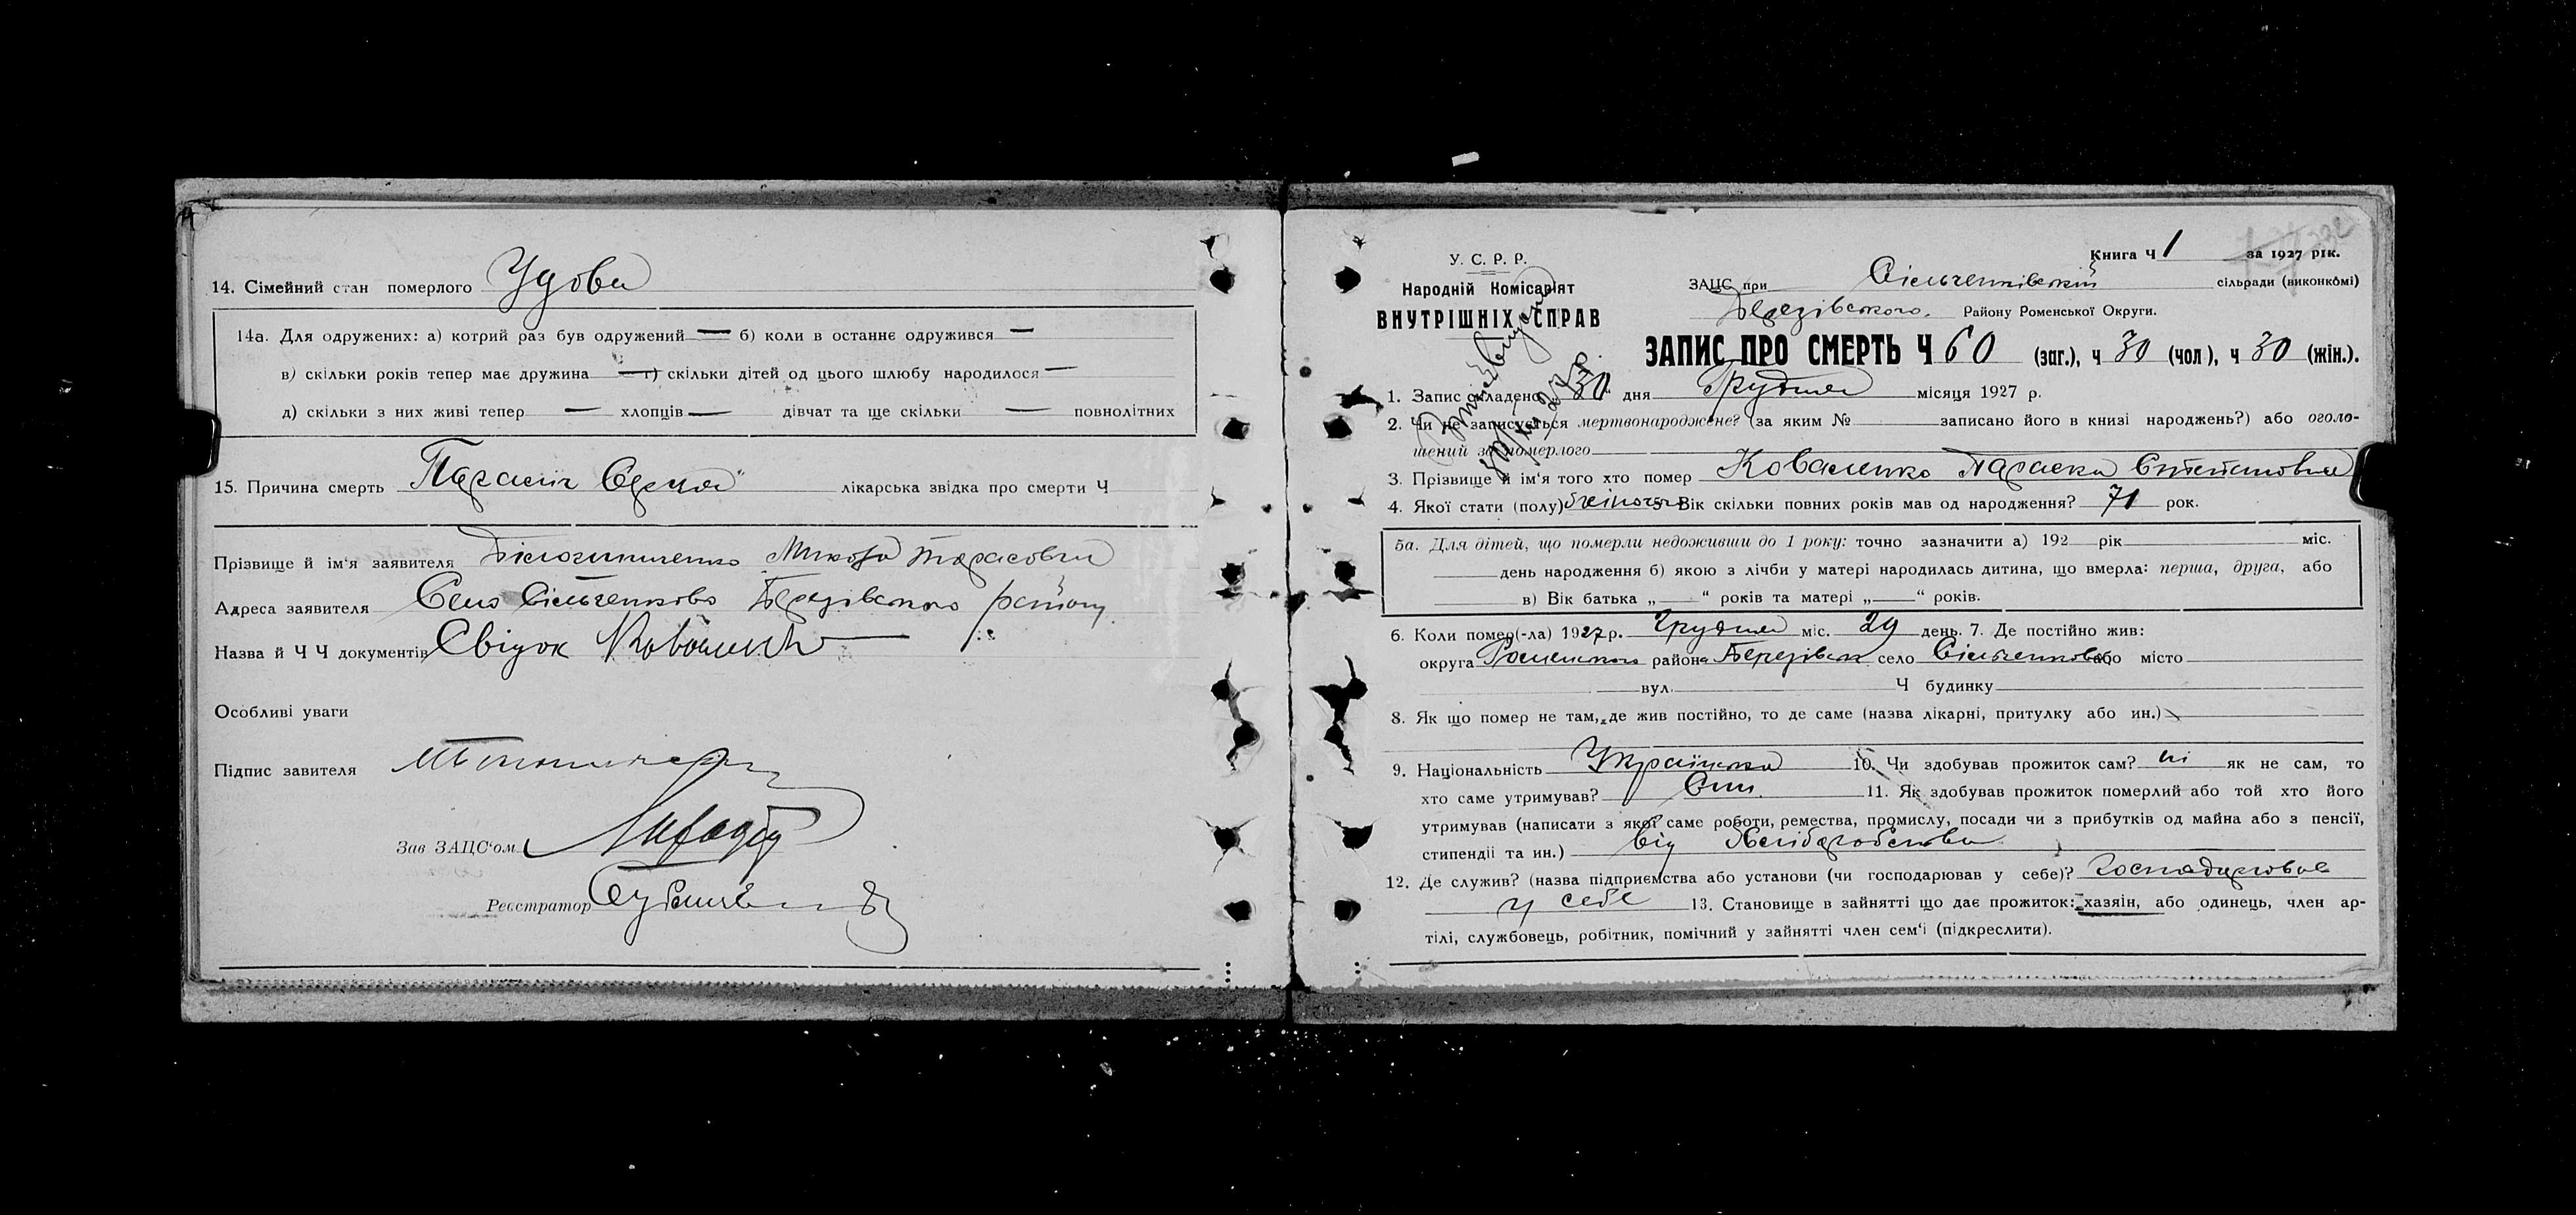 14. Сімейний стан померлого Удова
14а. Для одружених: а) котрий раз був одружений — б) коли в останнє одружився —
в) скільки років тепер має дружина — г) скільки дітей од цього шлюбу народилося —
д) скільки з них живі тепер — хлопців — дівчат та ще скільки — повнолітних
15. Причина смерть Параліч Серця лікарська звідка про смерти Ч
Прізвище й ім'я заявителя Микола Тарасович
Адреса заявителя Село Сільченково Березівського району
Назва й Ч Ч документів Свідок
Особливі уваги
Підпис завителя
Зав ЗАЦС'ом
Реєстратор
Книга Ч 1 за 1927 рік.
У. С. Р. Р.
Народній Комісаріят
ВНУТРІШНІХ СПРАВ
ЗАЦС при Сільченківській сільради (виконкомі)
Березівського Району Роменської Округи.
ЗАПИС ПРО СМЕРТЬ Ч 60 (заг.), ч 30 (чол), ч 30 (жін.).
1. Запис складено „30" дня Грудня місяця 1927 р.
2. Чи не записується мертвонароджене? (за яким № записано його в книзі народжень?) або оголо-
шений за померлого
3. Прізвище й ім'я того хто помер Коваленко Параска Степановна
4. Якої стати (полу) жіноча 5. Вік скільки повних років мав од народження? 71 рок.
5а. Для дітей, що померли недоживши до 1 року: точно зазначити а) 192 рік міс.
день народження б) якою з лічби у матері народилась дитина, що вмерла: перша, друга, або
в) Вік батька „ — " років та матері „ — " років.
6. Коли помер(-ла) 1927 р. Грудня міс. 29 день. 7. Де постійно жив:
округа Роменського района Березівськ село Сільченково або місто
вул. Ч будинку
8. Як що помер не там, де жив постійно, то де саме (назва лікарні, притулку або ин.)
9. Національність Українка 10. Чи здобував прожиток сам? ні як не сам, то
хто саме утримував? Син. 11. Як здобував прожиток померлий або той хто його
утримував (написати з якої саме роботи, ремества, промислу, посади чи з прибутків од майна або з пенсії,
стипендії та ин.) від Хліборобства
12. Де служив? (назва підприємства або установи (чи господарював у себе)? господарював
у себе 13. Становище в зайнятті що дає прожиток: хазяін, або одинець, член ар-
тілі, службовець, робітник, помічний у зайнятті член сем'і (підкреслити).